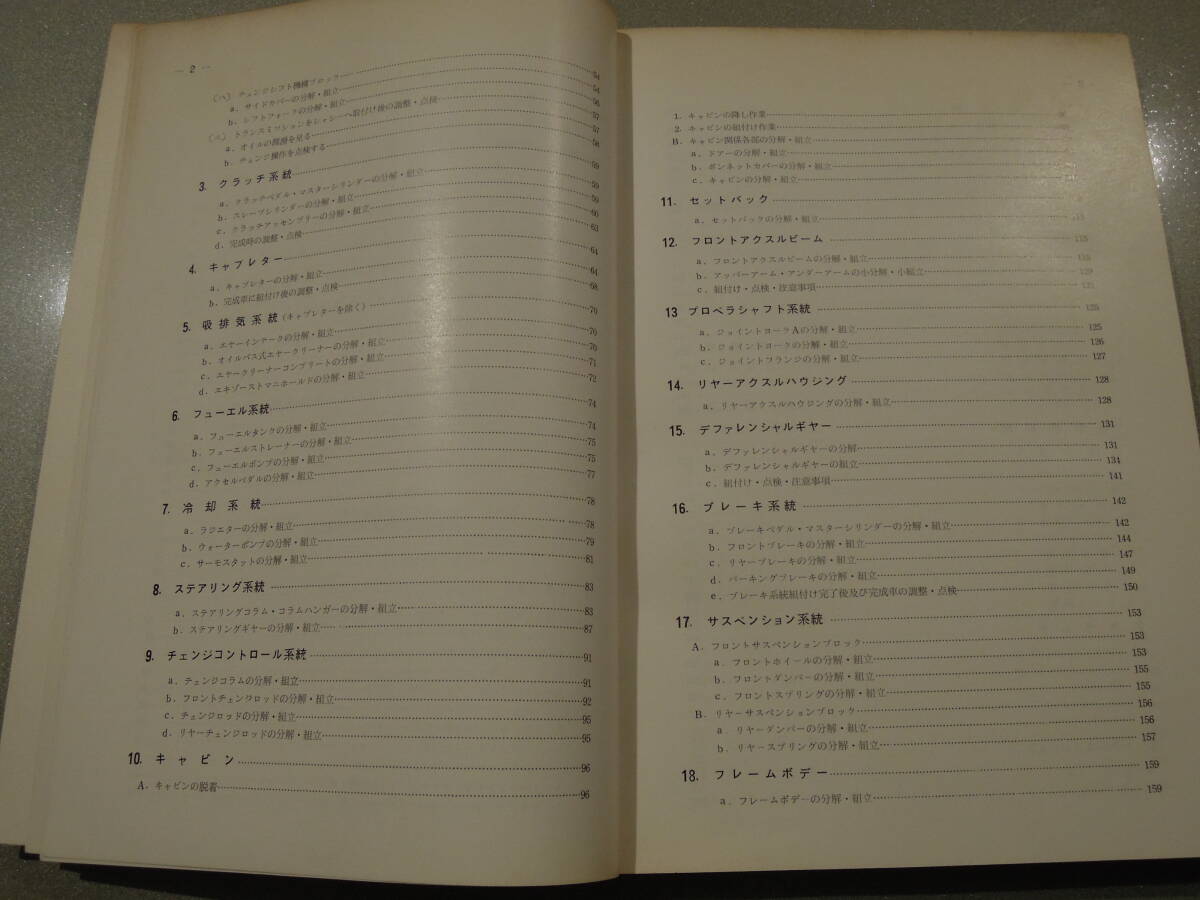 — 2 —
(ハ) チェンジシフト機構ブロック 54
a. サイドカバーの分解・組立 54
b. シフトフォークの分解・組立 56
(ニ) トランスミッションをシャシーへ取付け後の調整・点検 57
a. オイルの潤滑を見る 57
b. チェンジ操作を点検する 58
3. クラッチ系統 59
a. クラッチペダル・マスターシリンダーの分解・組立 59
b. スレーブシリンダーの分解・組立 59
c. クラッチアッセンブリーの分解・組立 60
d. 完成時の調整・点検 63
4. キャブレター 64
a. キャブレターの分解・組立 64
b. 完成車に組付け後の調整・点検 68
5. 吸排気系統(キャブレターを除く) 70
a. エヤーインテークの分解・組立 70
b. オイルバス式エヤークリーナーの分解・組立 70
c. エヤークリーナーコンプリートの分解・組立 71
d. エキゾーストマニホールドの分解・組立 72
6. フューエル系統 74
a. フューエルタンクの分解・組立 74
b. フューエルストレーナーの分解・組立 75
c. フューエルポンプの分解・組立 75
d. アクセルペダルの分解・組立 77
7. 冷却系統 78
a. ラジエターの分解・組立 78
b. ウォーターポンプの分解・組立 79
c. サーモスタットの分解・組立 81
8. ステアリング系統 83
a. ステアリングコラム・コラムハンガーの分解・組立 83
b. ステアリングギヤーの分解・組立 87
9. チェンジコントロール系統 91
a. チェンジコラムの分解・組立 91
b. フロントチェンジロッドの分解・組立 92
c. チェンジロッドの分解・組立 95
d. リヤーチェンジロッドの分解・組立 95
10. キャビン 96
A. キャビンの脱着 96
1. キャビンの降し作業
2. キャビンの組付け作業
B. キャビン関係各部の分解・組立
a. ドアーの分解・組立
b. ボンネットカバーの分解・組立
c. キャビンの分解・組立
11. セットバック
a. セットバックの分解・組立
12. フロントアクスルビーム 115
a. フロントアクスルビームの分解・組立
b. アッパーアーム・アンダーアームの小分解・小組立
c. 組付け・点検・注意事項 121
13 プロペラシャフト系統 125
a. ジョイントヨークAの分解・組立 125
b. ジョイントヨークの分解・組立 126
c. ジョイントフランジの分解・組立 127
14. リヤーアクスルハウジング 128
a. リヤーアクスルハウジングの分解・組立 128
15. デファレンシャルギヤー 131
a. デファレンシャルギヤーの分解 131
b. デファレンシャルギヤーの組立 134
c. 組付け・点検・注意事項 141
16. ブレーキ系統 142
a. ブレーキペダル・マスターシリンダーの分解・組立 142
b. フロントブレーキの分解・組立 144
c. リヤーブレーキの分解・組立 147
d. パーキングブレーキの分解・組立 149
e. ブレーキ系統組付け完了後及び完成車の調整・点検 150
17. サスペンション系統 153
A. フロントサスペンションブロック 153
a. フロントホイールの分解・組立 153
b. フロントダンパーの分解・組立 155
c. フロントスプリングの分解・組立 155
B. リヤーサスペンションブロック 156
a. リヤーダンパーの分解・組立 156
b. リヤースプリングの分解・組立 157
18. フレームボデー 159
a. フレームボデーの分解・組立 159